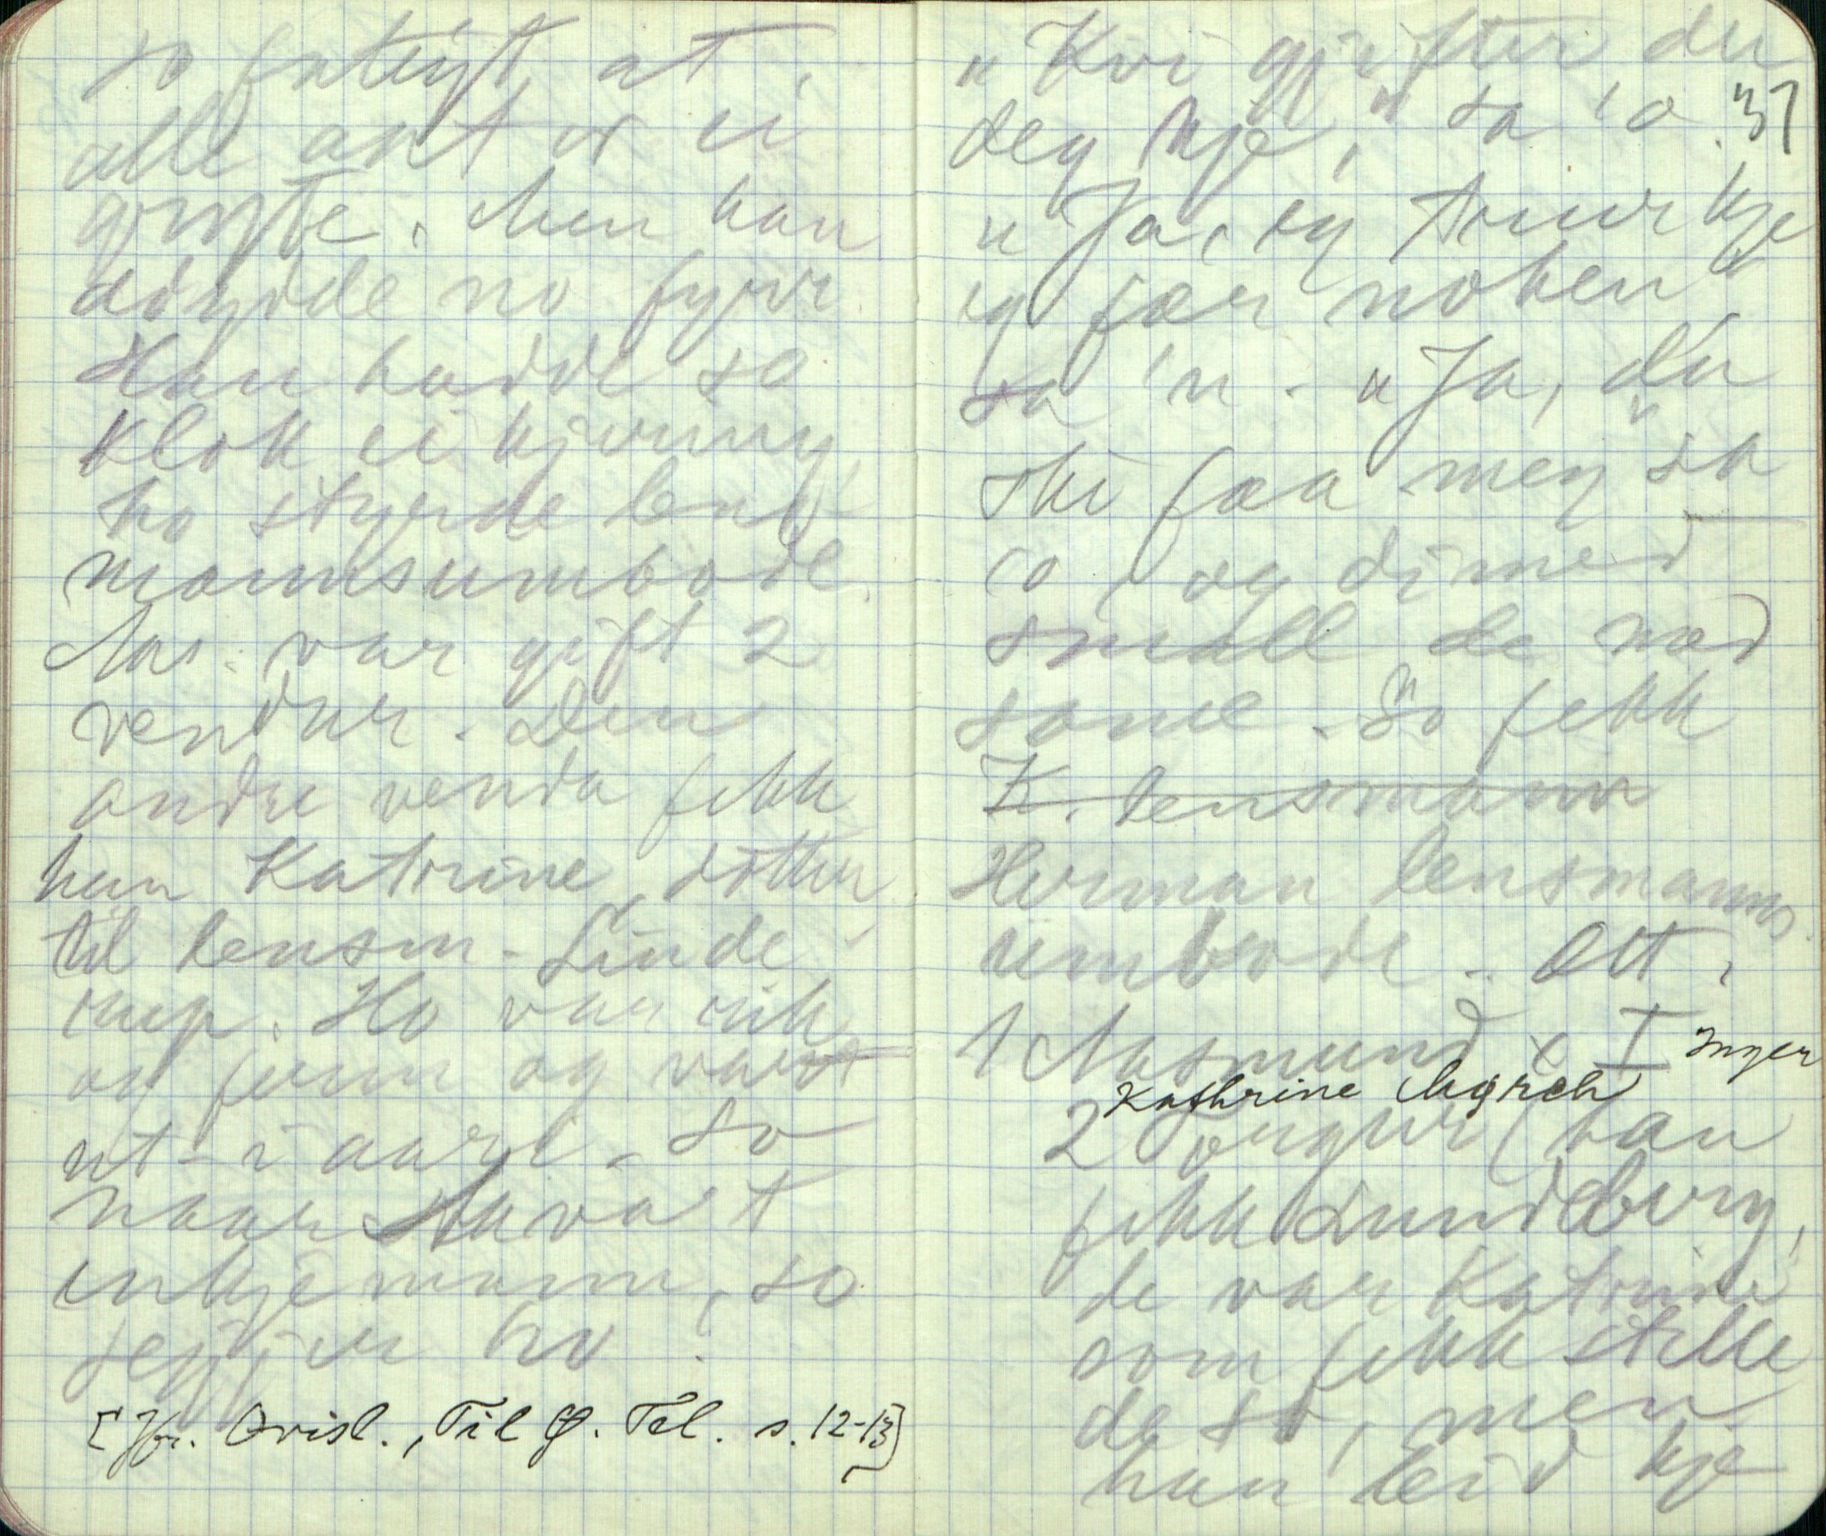 so fatigt, at
alle ant er ei
gryte. Men han
adyrde no fyrr
Han hadde so
klok ei kjerring,
ho styrde lens-
mannsumbode.
Aas. var gift 2
vendur. Den
andre venda fekk
han Katrine, dotter
til lensm. Linde-
rup. Ho var rik
og fin og
ut i aare. So
naar
inkje mann, so
seijer ho:
[Jfr. Avisl., Til G. Tel. s. 12-13]
37
"Kvi gjifter du
deg kje," sa 'o
"Ja, eg truer kje
eg fær noken"
sa 'n. "Ja, du
ski faa meg" sa
'o, og dimed
small de med
same. So fekk
K. lensmann
Herman lensmanns
umbode. Ætt.
1 Aasmund x I Inger
Kathrine Mørch
2 (han
fekk Lundeborg,
de var Katrine
som fekk stelle
de so, men
han leid kje